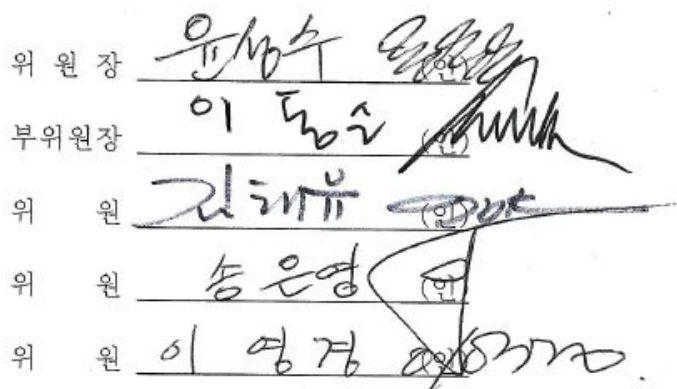 위 원 장 윤성수 (인)
부위원장 이 동 순 (인)
위 원 김해유 (인)
위 원 송은영 (인)
위 원 이 영 경 (인)